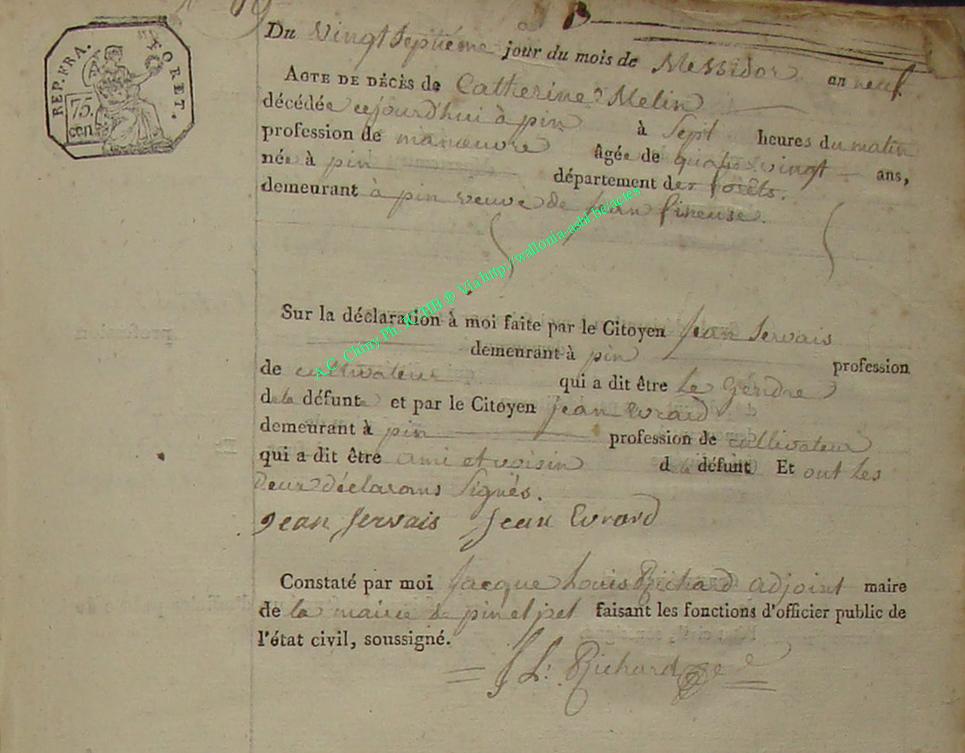 REP. FRA. FORET.
75. cen
Du Vingt Septiéme jour du mois de Messidor an neuf.
ACTE DE DÉCÈS de Catherine Melin
décédée cejourd'hui à pin à Sept heures du matin
profession de manœuvre âgée de quatre vingt ans,
née à pin département des forêts.
demeurant à pin veuve de jean
Sur la déclaration à moi faite par le Citoyen Jean Servais
demeurant à pin profession
de cultivateur qui a dit être Le Gendre
de la défunte et par le Citoyen jean Evrard
demeurant à pin profession de cultivateur
qui a dit être ami et voisin d la défunt Et ont les
Deux déclarans Signés.
Jean Servais Jean Evrard
Constaté par moi Jacque Louis Richard adjoint maire
de la mairie de pin faisant les fonctions d'officier public de
l'état civil, soussigné.
J L: Richard
A.C. Chiny Ph. JCHB © Via http/wallonia-asbl.be/acies